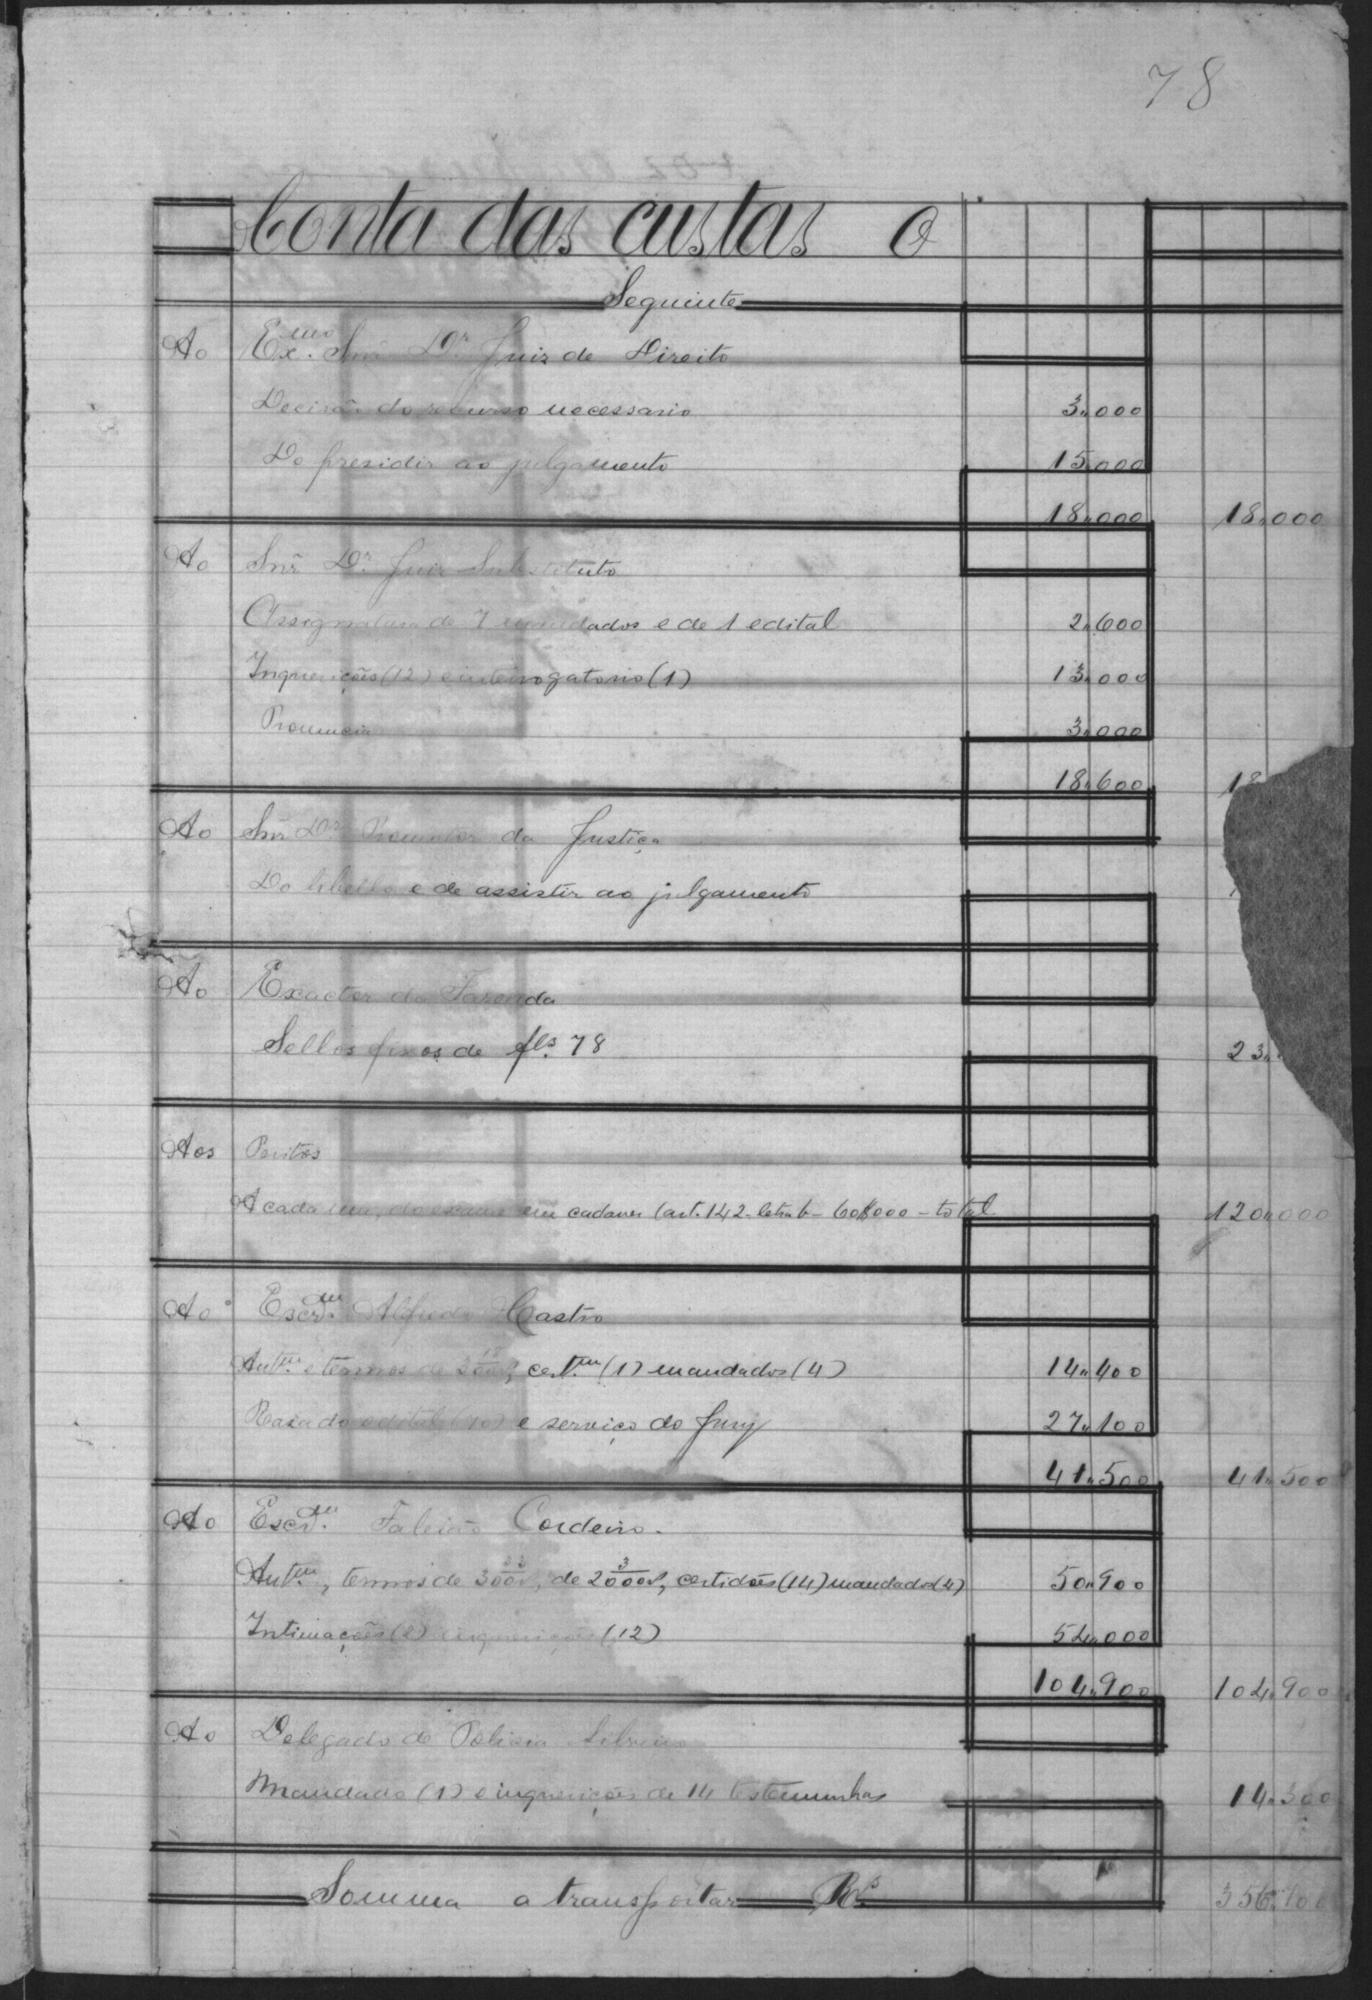 78
Conta das custas o
Seguinte
Ao Ex.mo Snr. Dr. Juiz de Direito
Decisão do recurso necessario 3,,000
Do presidir ao julgamento 15,,000
18,,000 18,,000
Ao Snr. Dr. Juiz Substituto
Assignatura de 7 mandados e de 1 edital 2,,600
Inquirições (12) e interrogatorio (1) 13,,000
Pronuncia 3,,000
18,,600 18
Ao Snr. Dr. Promotor da Justiça
Do libello e de assistir ao julgamento
Ao Exactor da Fazenda
Sellos fixos de fls. 78 23,,
Aos Peritos
A cada um, do exame em cadaver (art. 142 - letra b - 60$000 - total 120,,000
Ao Escr.m Alfredo Castro
Aut.m e termos de cert.m (1) mandados (4) 14,,400
Rasa do edital (10) e serviço do Jury 27,,100
41,,500 41,,500
Ao Escr.m Cordeiro.
Aut.m, termos de 300, de 2000, certidões (14) mandados (4) 50,,900
Intimações (2) inquirições (12) 54,,000
104,,900 104,,900
Ao Delegado de Policia
Mandado (1) e inquirições de 14 testemunhas 14,,300
Somma a transportar Rs. 356,,100